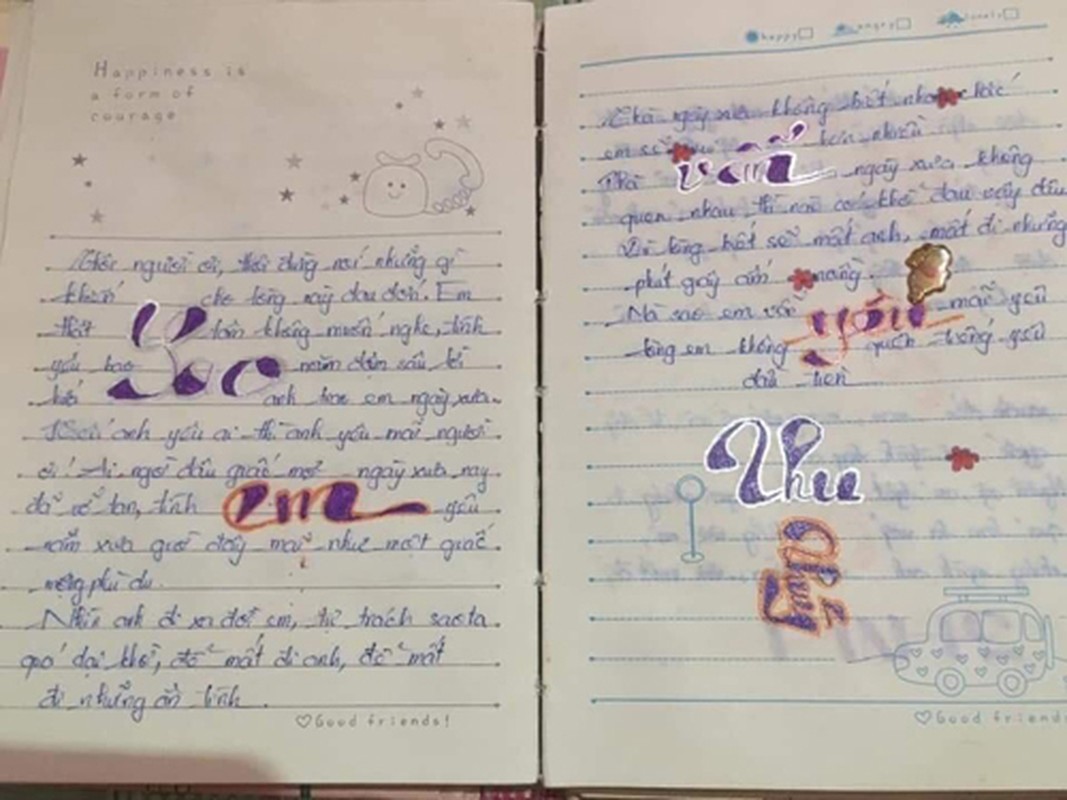 Happiness is
a form of
courage
Thôi người ơi, thôi đừng nói những gì
khiến cho lòng này đau đớn. Em
thật tâm không muốn nghe, tình
yêu bao năm đậm sâu lời
hứa anh trao em ngày xưa.
Sao
Nếu anh yêu ai thì anh yêu mãi người
ơi! Ai ngờ đâu giấc mơ ngày xưa nay
đã vỡ tan, tình yêu
em
năm xưa giờ đây mãi như một giấc
mộng phù du.
Nhìn anh đi xa đời em, tự trách sao ta
quá dại khờ, để mất đi anh, để mất
đi những ân tình
Good friends!
happy angry lonely
Thà ngày xưa không biết nhau
em sẽ vui hơn nhiều
vẫn
Thà ngày xưa không
quen nhau thì nào có khổ đau vậy đâu
Và lòng hết sợ mất anh, mất đi những
phút giây ấm nóng.
Mà sao em vẫn mãi yêu
yêu
lòng em không quên tiếng yêu
đầu tiên
Thu
Thủy
Good friends